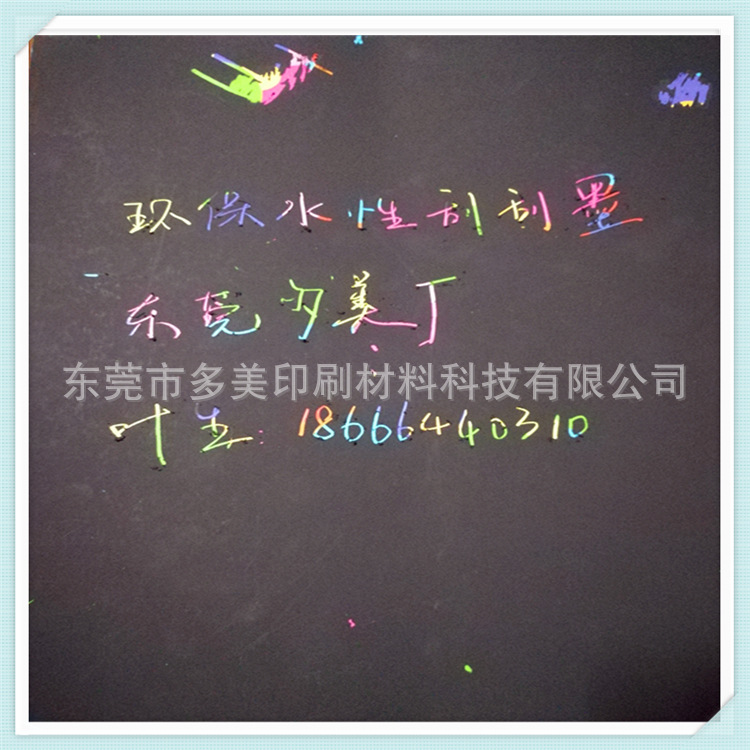 环保水性刮刮墨
东莞多美丁
东莞市多美印刷材料科技有限公司
叶生：18666440310